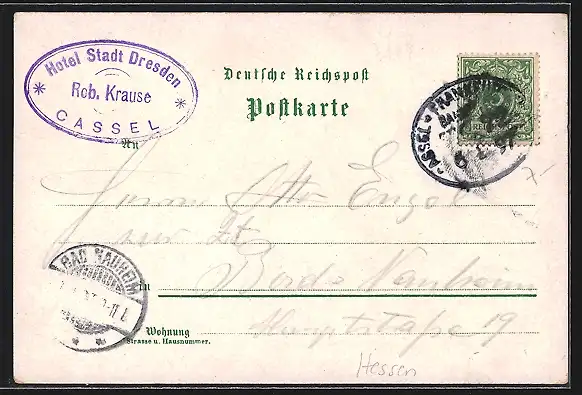 Hotel Stadt Dresden
Rob. Krause
CASSEL
Deutsche Reichspost
Postkarte
An
Herrn Otto Engel
zur Zt
in Bad-Nauheim
Wohnung
Strasse u. Hausnummer.
Hauptstraße 19
Hessen
CASSEL - FRANKFURT
BAD NAUHEIM
7-